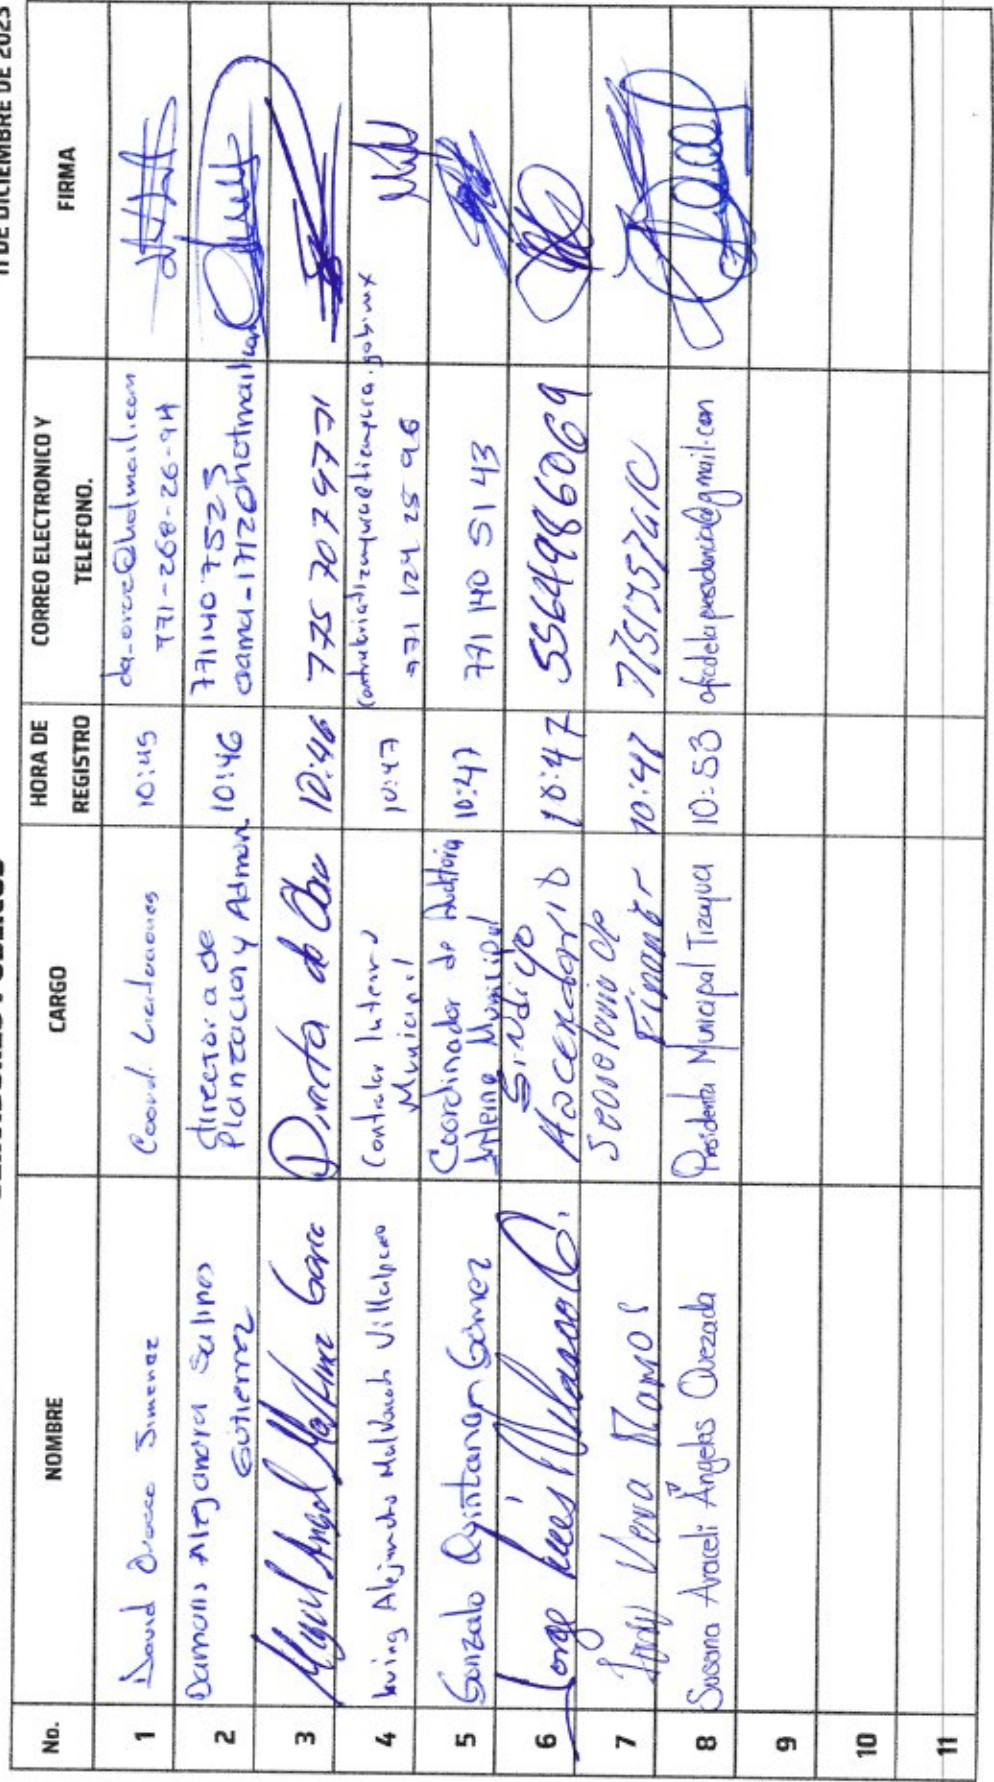 11 DE DICIEMBRE DE 2023
No.
NOMBRE
CARGO
HORA DE
REGISTRO
CORREO ELECTRONICO Y
TELEFONO.
FIRMA
1
David Orocce Jimenez
Coord. Licitaciones
10:45
da_orcce@hotmail.com
771-268-26-94
2
Damaris Alejandra Salinas
Gutierrez
directora de
Planzación y Admon
10:46
7711407523
3
Miguel Angel Martinez Garc
Directa de Obr
10:46
775 707 4771
4
Irving Alejandro Maldonado Villalpando
Contralor Interno
Municipal
10:47
771 124 25 96
5
Gonzalo Quintanar Gómez
Coordinador de Auditoria
Interno Municipal
10:47
771 140 51 43
6
Jorge Luis
Sindico
Hacendario
10:47
5564986069
7
Vera Ramos
Finanzas
10:47
8
Susana Araceli Ángeles Quezada
Presidenta Municipal Tizayuca
10:53
oficdelapresidencia@gmail.com
9
10
11